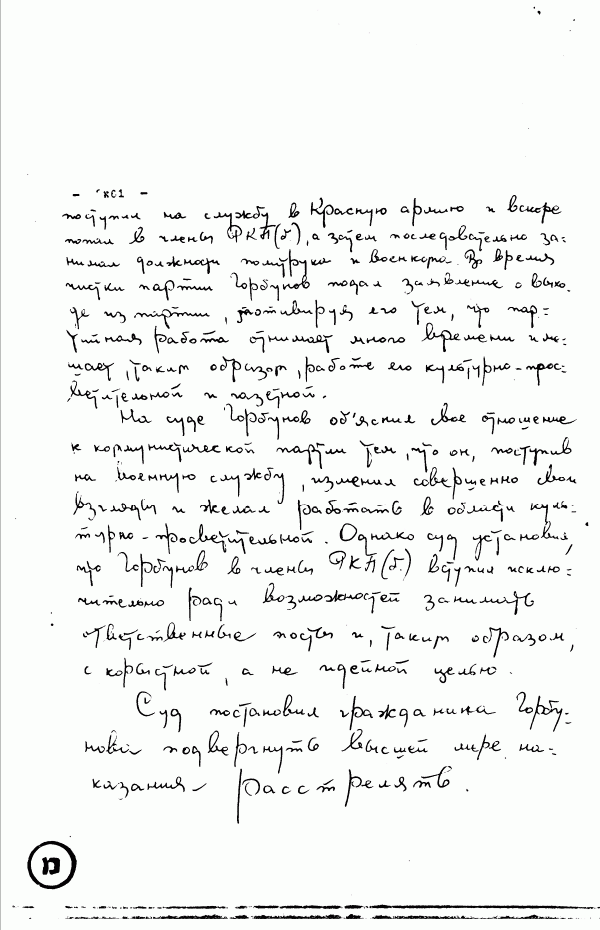 поступил на службу в Красную армию и вскоре
попал в члены РКП(б.), а затем последовательно за-
нимал должности политрука и военкора. Во время
чистки партии Горбунов подал заявление о выхо-
де из партии, мотивируя его тем, что пар-
тийная работа отнимает много времени и ме-
шает, таким образом, работе его культурно-прос-
ветительной и газетной.
На суде Горбунов об'яснил свое отношение
к коммунистической партии тем, что он, поступив
на военную службу, изменил совершенно свои
взгляды и желал работать в области куль-
турно-просветительной. Однако суд установил,
что Горбунов в члены РКП(б.) вступил исклю-
чительно ради возможностей занимать
ответственные посты и, таким образом,
с корыстной, а не идейной целью.
Суд постановил гражданина Горбу-
нова подвергнуть высшей мере на-
казания - расстрелять.